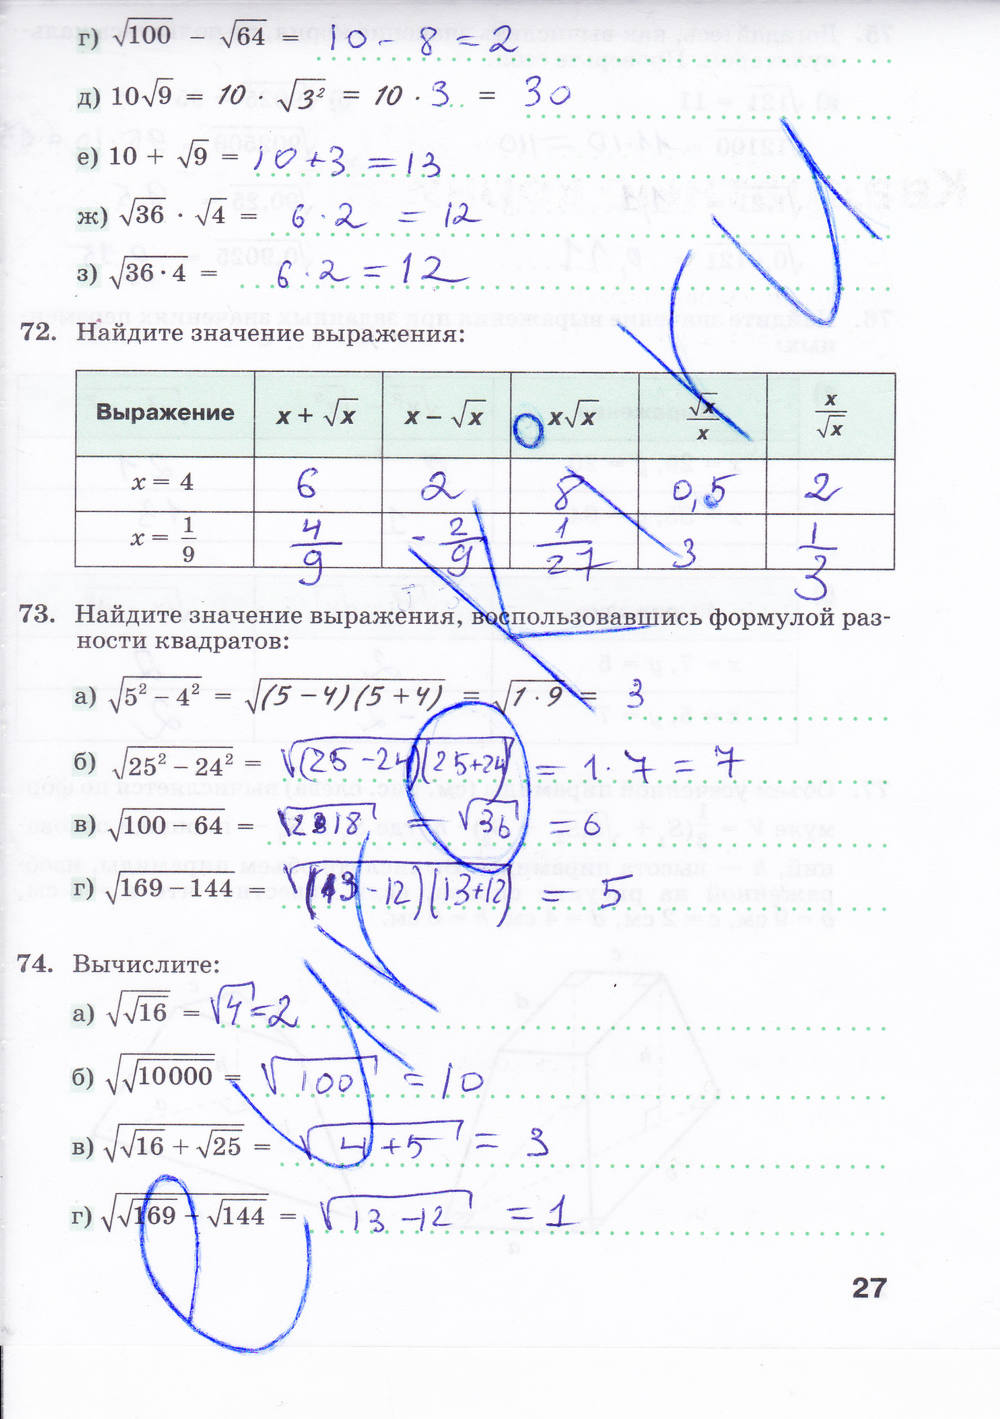 г) √100 − √64 = 10 − 8 = 2
д) 10√9 = 10 · √3² = 10 · 3 = 30
е) 10 + √9 = 10 + 3 = 13
ж) √36 · √4 = 6 · 2 = 12
з) √(36 · 4) = 6 · 2 = 12
72. Найдите значение выражения:
Выражение x + √x x − √x x√x √x/x x/√x
x = 4 6 2 8 0,5 2
x = 1/9 4/9 −2/9 1/27 3 1/3
73. Найдите значение выражения, воспользовавшись формулой раз-
ности квадратов:
а) √(5² − 4²) = √((5 − 4)(5 + 4)) = √(1 · 9) = 3
б) √(25² − 24²) = √((25 − 24)(25 + 24)) = 1 · 7 = 7
в) √(100 − 64) = = √36 = 6
г) √(169 − 144) = √((13 − 12)(13 + 12)) = 5
74. Вычислите:
а) √√16 = √4 = 2
б) √√10000 = √100 = 10
в) √(√16 + √25) = √(4 + 5) = 3
г) √(√169 − √144) = √(13 − 12) = 1
27